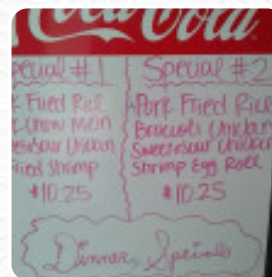 Coca-Cola
pecial #1
Fried Rice
Chow Mein
Sweet & Sour Chicken
Fried Shrimp
$10.25
Special #2
Pork Fried Rice
Broccoli Chicken
Sweet & Sour Chicken
Shrimp Egg Roll
$10.25
Dinner Specials